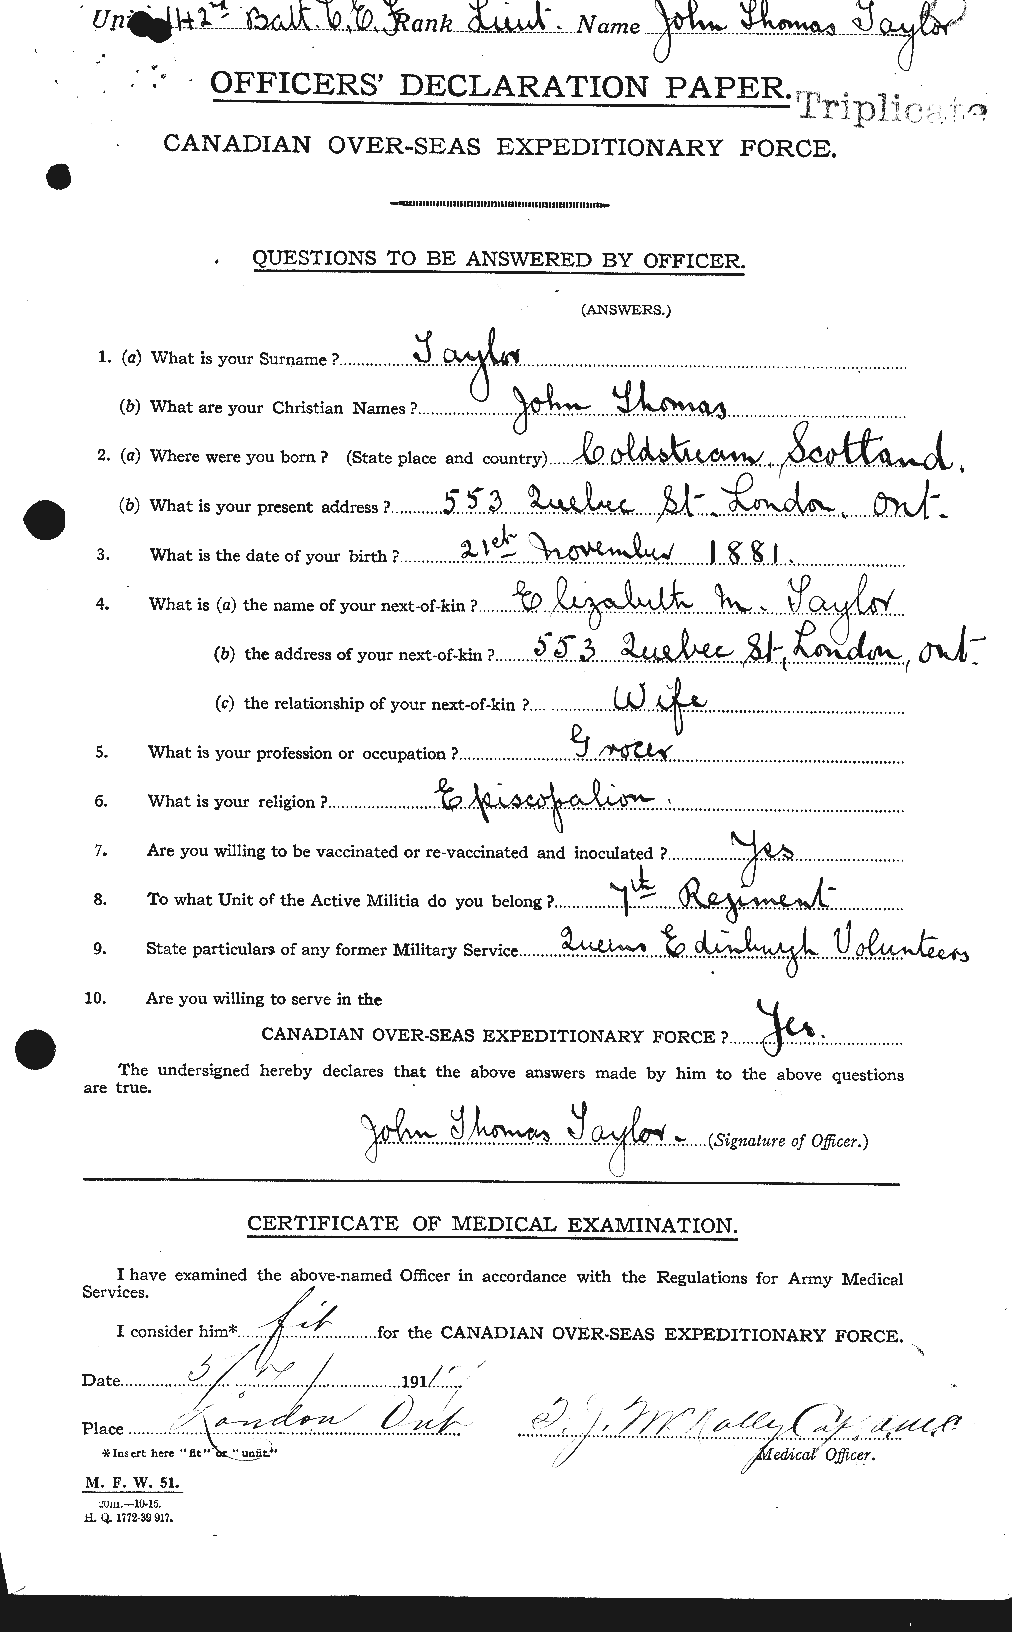 Unit 142nd Batt. C.E.F. Rank Lieut. Name John Thomas Taylor
OFFICERS' DECLARATION PAPER.
Triplicate
CANADIAN OVER-SEAS EXPEDITIONARY FORCE.
QUESTIONS TO BE ANSWERED BY OFFICER.
(ANSWERS.)
1. (a) What is your Surname? Taylor
(b) What are your Christian Names? John Thomas
2. (a) Where were you born? (State place and country) Coldstream. Scotland.
(b) What is your present address? 553 Quebec St. London. Ont.
3. What is the date of your birth? 21st November 1881.
4. What is (a) the name of your next-of-kin? Elizabeth M. Taylor
(b) the address of your next-of-kin? 553 Quebec St, London, Ont.
(c) the relationship of your next-of-kin? Wife
5. What is your profession or occupation? Grocer
6. What is your religion? Episcopalion.
7. Are you willing to be vaccinated or re-vaccinated and inoculated? Yes
8. To what Unit of the Active Militia do you belong? 7th Regiment
9. State particulars of any former Military Service Queens Edinburgh Volunteers
10. Are you willing to serve in the
CANADIAN OVER-SEAS EXPEDITIONARY FORCE? Yes.
The undersigned hereby declares that the above answers made by him to the above questions
are true.
John Thomas Taylor. (Signature of Officer.)
CERTIFICATE OF MEDICAL EXAMINATION.
I have examined the above-named Officer in accordance with the Regulations for Army Medical
Services.
I consider him* fit for the CANADIAN OVER-SEAS EXPEDITIONARY FORCE.
Date 191
Place London Ont
*Insert here "fit" or "unfit."
Medical Officer.
M. F. W. 51.
H. Q. 1772-39 917.